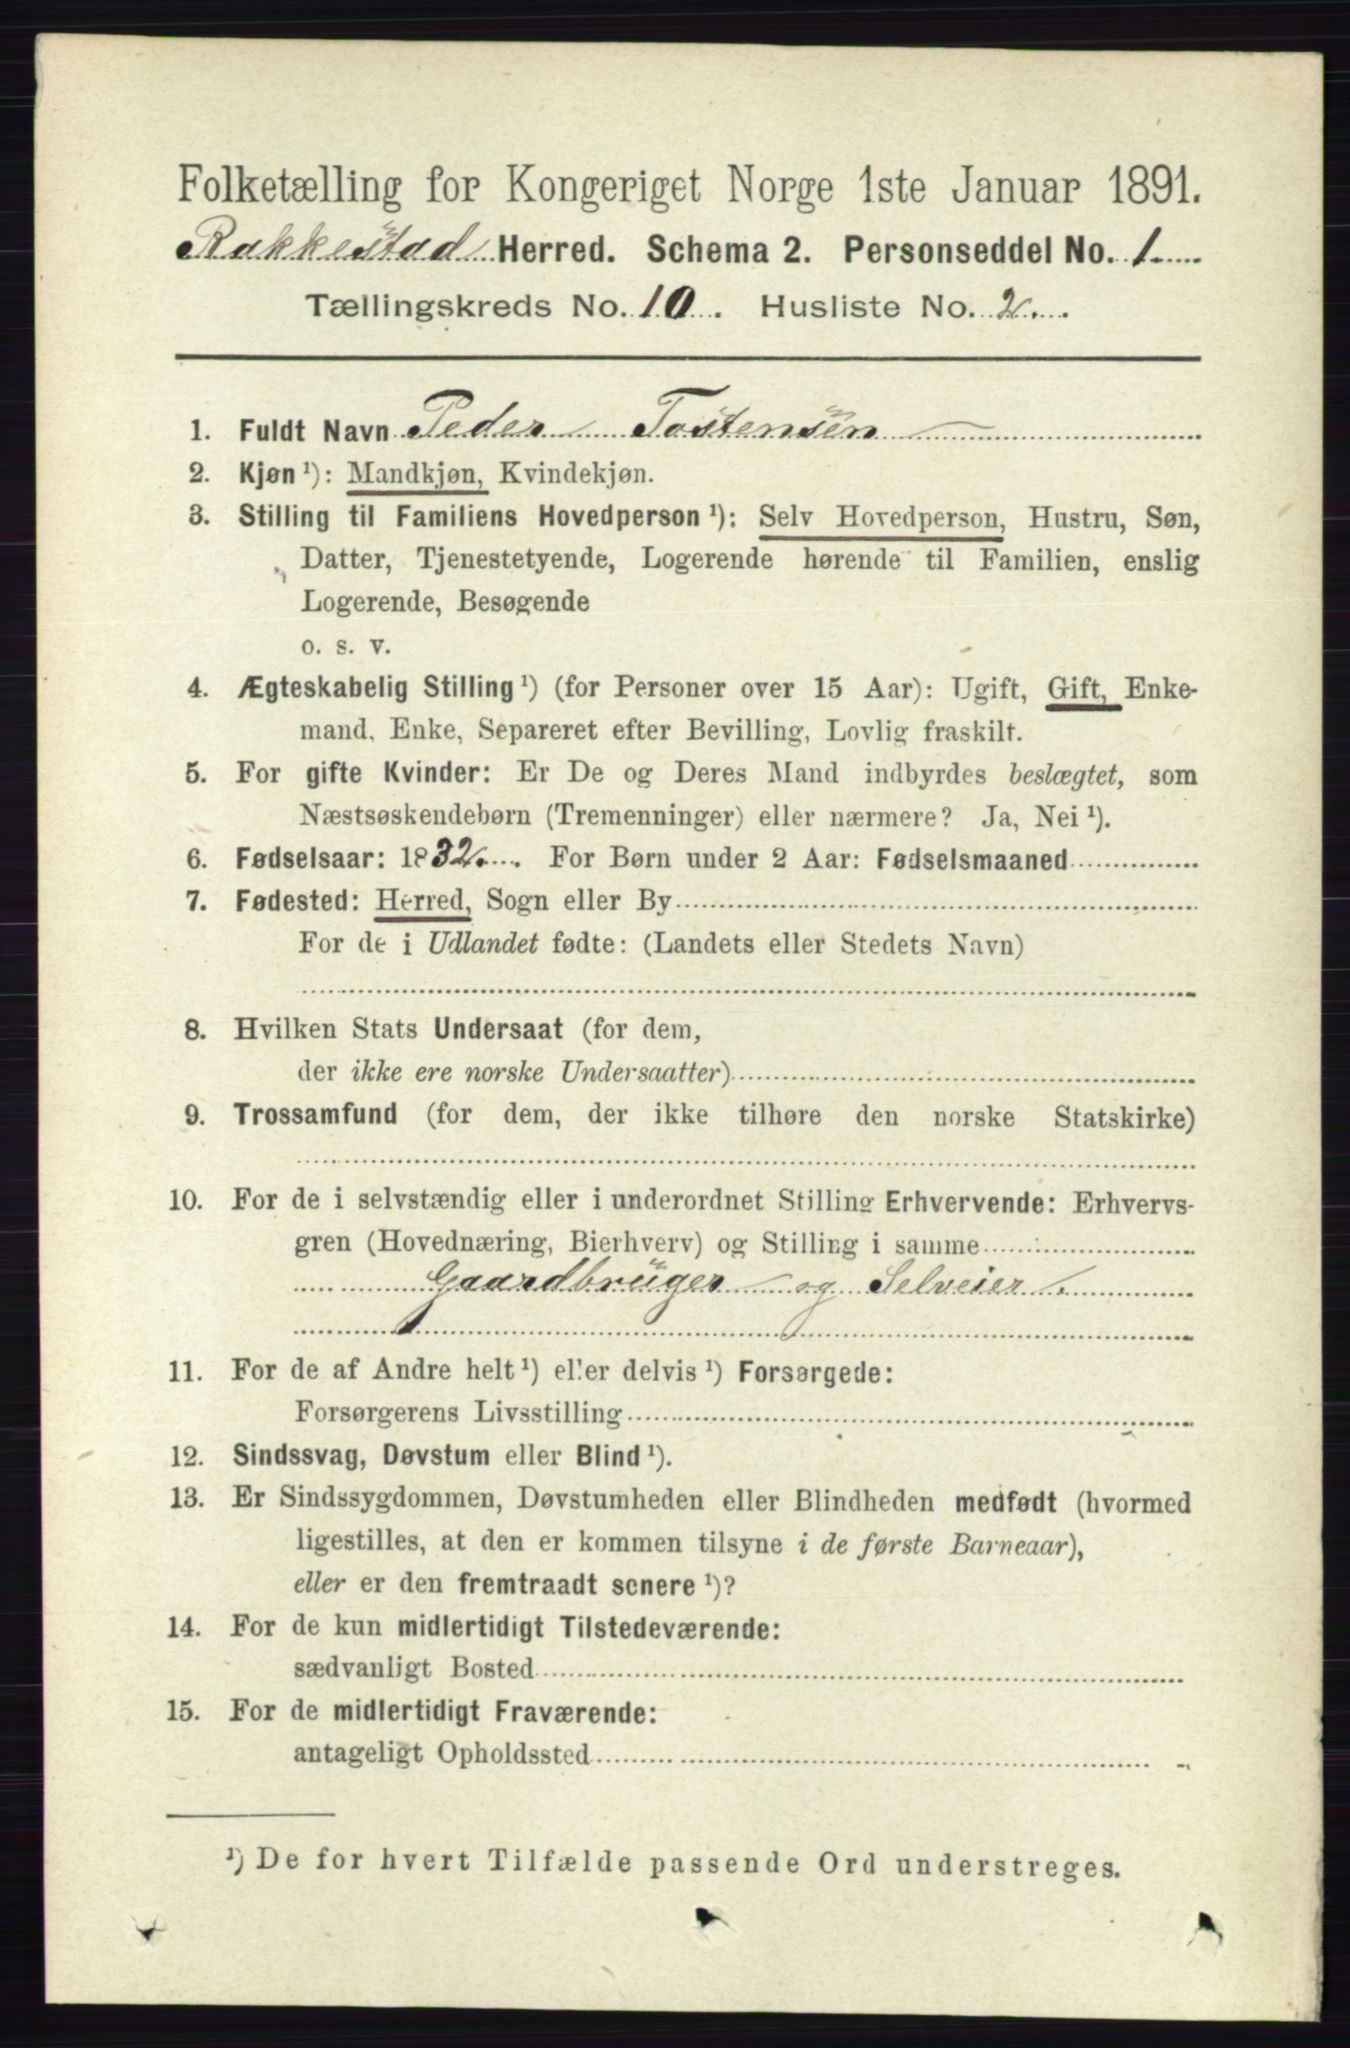 Folketælling for Kongeriget Norge 1ste Januar 1891.
Rakkestad Herred. Schema 2. Personseddel No. 1.
Tællingskreds No. 10. Husliste No. 2.
1. Fuldt Navn Peder Tostensen
2. Kjøn ¹): Mandkjøn, Kvindekjøn.
3. Stilling til Familiens Hovedperson ¹): Selv Hovedperson, Hustru, Søn,
Datter, Tjenestetyende, Logerende hørende til Familien, enslig
Logerende, Besøgende
o. s. v.
4. Ægteskabelig Stilling ¹) (for Personer over 15 Aar): Ugift, Gift, Enke-
mand, Enke, Separeret efter Bevilling, Lovlig fraskilt.
5. For gifte Kvinder: Er De og Deres Mand indbyrdes beslægtet, som
Næstsøskendebørn (Tremenninger) eller nærmere? Ja, Nei ¹).
6. Fødselsaar: 1832. For Børn under 2 Aar: Fødselsmaaned
7. Fødested: Herred, Sogn eller By
For de i Udlandet fødte: (Landets eller Stedets Navn)
8. Hvilken Stats Undersaat (for dem,
der ikke ere norske Undersaatter)
9. Trossamfund (for dem, der ikke tilhøre den norske Statskirke)
10. For de i selvstændig eller i underordnet Stilling Erhvervende: Erhvervs-
gren (Hovednæring, Bierhverv) og Stilling i samme
Gaardbrüger og Selveier.
11. For de af Andre helt ¹) eller delvis ¹) Forsørgede:
Forsørgerens Livsstilling
12. Sindssvag, Døvstum eller Blind ¹).
13. Er Sindssygdommen, Døvstumheden eller Blindheden medfødt (hvormed
ligestilles, at den er kommen tilsyne i de første Barneaar),
eller er den fremtraadt senere ¹)?
14. For de kun midlertidigt Tilstedeværende:
sædvanligt Bosted
15. For de midlertidigt Fraværende:
antageligt Opholdssted
¹) De for hvert Tilfælde passende Ord understreges.